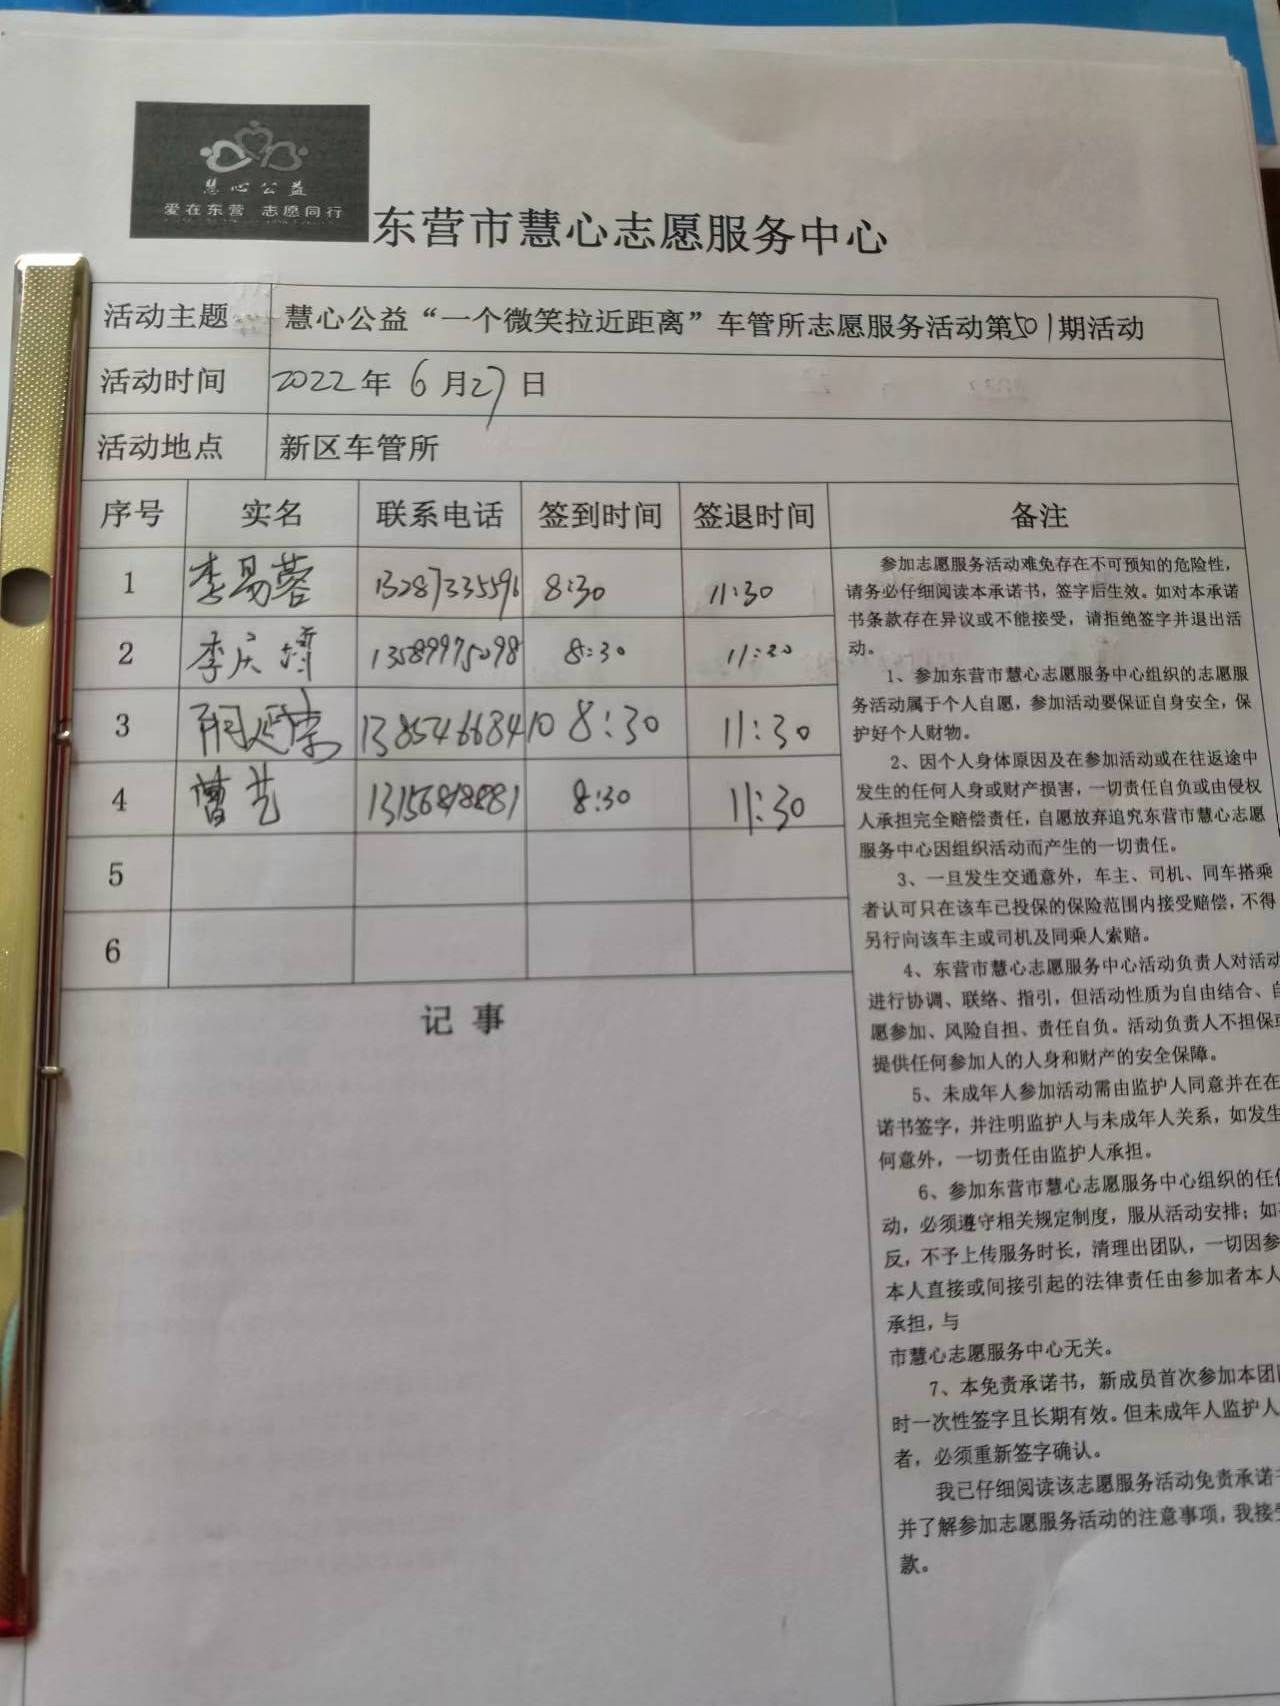 慧心公益
爱在东营 志愿同行
东营市慧心志愿服务中心
活动主题 慧心公益“一个微笑拉近距离”车管所志愿服务活动第501期活动
活动时间 2022年6月27日
活动地点 新区车管所
序号 实名 联系电话 签到时间 签退时间 备注
1 李易蓉 13287335596 8:30 11:30
2 李庆 13589975098 8:30 11:30
3 13854668410 8:30 11:30
4 曹艺 8:30 11:30
5
6
记事
参加志愿服务活动难免存在不可预知的危险性，
请务必仔细阅读本承诺书，签字后生效。如对本承诺
书条款存在异议或不能接受，请拒绝签字并退出活
动。
1、参加东营市慧心志愿服务中心组织的志愿服
务活动属于个人自愿，参加活动要保证自身安全，保
护好个人财物。
2、因个人身体原因及在参加活动或在往返途中
发生的任何人身或财产损害，一切责任自负或由侵权
人承担完全赔偿责任，自愿放弃追究东营市慧心志愿
服务中心因组织活动而产生的一切责任。
3、一旦发生交通意外，车主、司机、同车搭乘
者认可只在该车已投保的保险范围内接受赔偿，不得
另行向该车主或司机及同乘人索赔。
4、东营市慧心志愿服务中心活动负责人对活动
进行协调、联络、指引，但活动性质为自由结合、自
愿参加、风险自担、责任自负。活动负责人不担保或
提供任何参加人的人身和财产的安全保障。
5、未成年人参加活动需由监护人同意并在在
诺书签字，并注明监护人与未成年人关系，如发生
何意外，一切责任由监护人承担。
6、参加东营市慧心志愿服务中心组织的任
动，必须遵守相关规定制度，服从活动安排；如
反，不予上传服务时长，清理出团队，一切因参
本人直接或间接引起的法律责任由参加者本人
承担，与
市慧心志愿服务中心无关。
7、本免责承诺书，新成员首次参加本团
时一次性签字且长期有效。但未成年人监护人
者，必须重新签字确认。
我已仔细阅读该志愿服务活动免责承诺
并了解参加志愿服务活动的注意事项，我接
款。